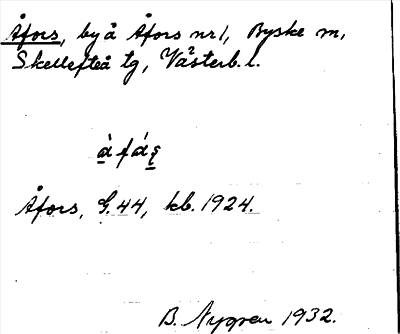 Åfors, by å Åfors nr 1, Byske m,
Skellefteå tg, Västerb. l.
Åfors, G. 44, kb. 1924.
B. Nygren 1932.